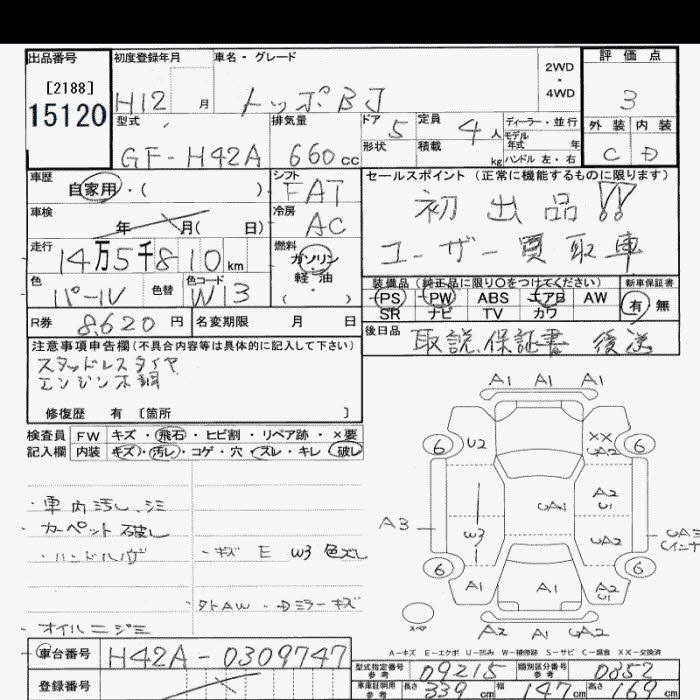 出品番号
[2188]
15120
初度登録年月
H12 月
車名・グレード
トッポBJ
2WD
・
4WD
評価点
3
型式
GF-H42A
排気量
660cc
ドア
5
形状
定員
4人
積載
kg
ディーラー・並行
モデル
年式 年
ハンドル 左・右
外装 内装
C D
車歴
自家用・( )
シフト
FAT
セールスポイント (正常に機能するものに限ります)
初出品!!
ユーザー買取車
車検
年 月( 日)
冷房
AC
走行
14万5千810km
燃料
ガソリン
軽・油
・( )
色
パール
色替
色コード
W13
装備品 (純正品に限り〇をつけてください)
PS PW ABS エアB AW
SR ナビ TV カワ
新車保証書
有 無
R券 8,620円
名変期限 月 日
後日品
取説、保証書 後送
注意事項申告欄(不具合内容等は具体的に記入して下さい)
スタッドレスタイヤ
修復歴 有 〔箇所 〕
検査員
記入欄
FW キズ・飛石・ヒビ割・リペア跡・×要
内装 キズ・汚れ・コゲ・穴・スレ・キレ・破れ
・車内汚れ、シミ
・カーペット破れ
・キズ E W3 色ズレ
A1 A1 A1
6 U2 XX 6
UA2
A2
U1
UA1
A3
W3
UA2
6 6
A1 A1 A2
U1
スペア
A2 A1 UA2
A-キズ E-エクボ U-凹み W-補修跡 S-サビ C-腐食 XX-交換済
車台番号
H42A-0309747
登録番号
型式指定番号
参考
09215
類別区分番号
参考
0352
車庫証明用
参考
長さ 339cm 幅 147cm 高さ 169cm